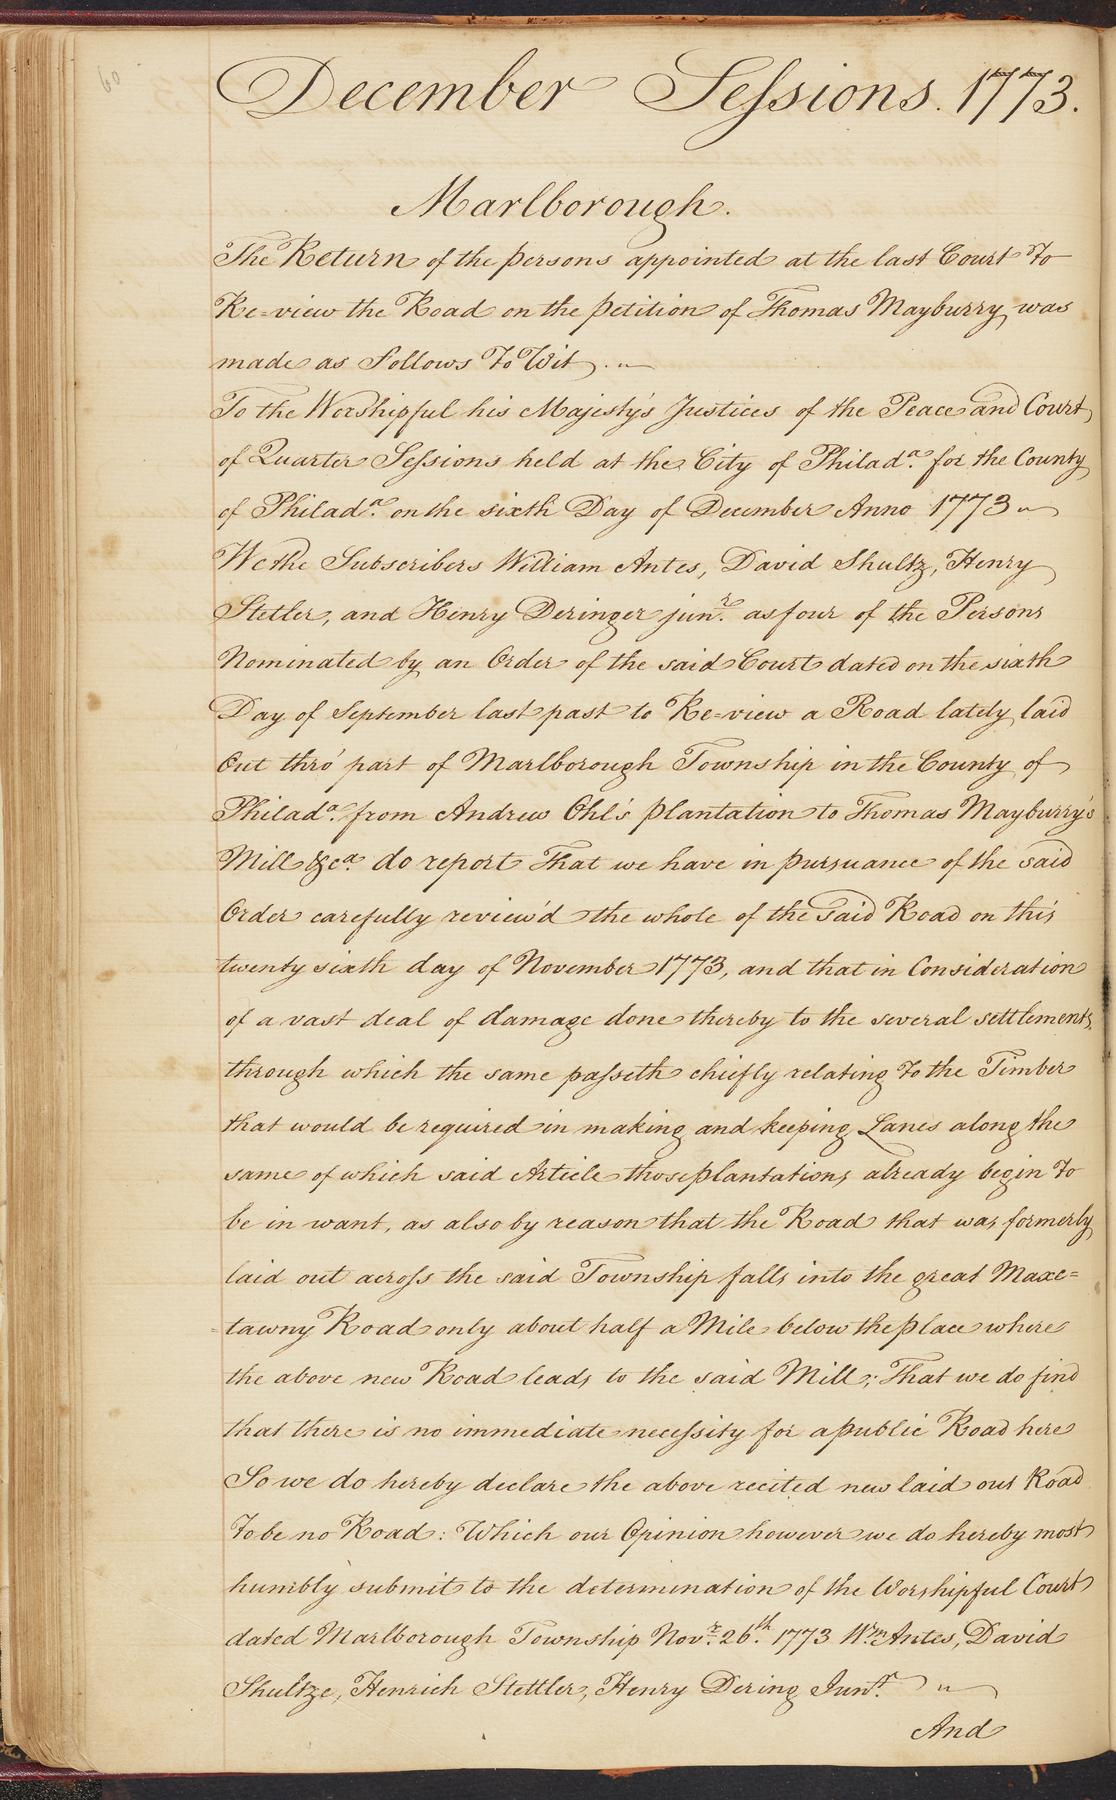 60
December Sessions. 1773.
Marlborough.
The Return of the persons appointed at the last Court To
Re=view the Road on the petition of Thomas Mayburry was
made as follows To Wit
To the Worshipful his Majesty's Justices of the Peace and Court
of Quarter Sessions held at the City of Philada. for the County
of Philada. on the sixth Day of December Anno 1773
We the Subscribers William Antes, David Shultz, Henry
Stetler, and Henry Deringer junr. as four of the Persons
Nominated by an Order of the said Court dated on the sixth
Day of September last past to Re=view a Road lately laid
Out thro' part of Marlborough Township in the County of
Philada. from Andrew Ohl's plantation to Thomas Mayburry's
Mill &ca. do report That we have in pursuance of the said
Order carefully review'd the whole of the said Road on this
twenty sixth day of November 1773, and that in Consideration
of a vast deal of damage done thereby to the several settlements
through which the same passeth chiefly relating To the Timber
that would be required in making and keeping Lanes along the
same of which said Article those plantations already begin To
be in want, as also by reason that the Road that was formerly
laid out across the said Township falls into the great Maxe=
=tawny Road only about half a Mile below the place where
the above new Road leads to the said Mill; That we do find
that there is no immediate necessity for a public Road here
So we do hereby declare the above recited new laid out Road
To be no Road: Which our Opinion however we do hereby most
humbly submit to the determination of the Worshipful Court
dated Marlborough Township Novr. 26th. 1773 Wm. Antes, David
Shultze, Henrich Stettler, Henry Dering Junr.
And